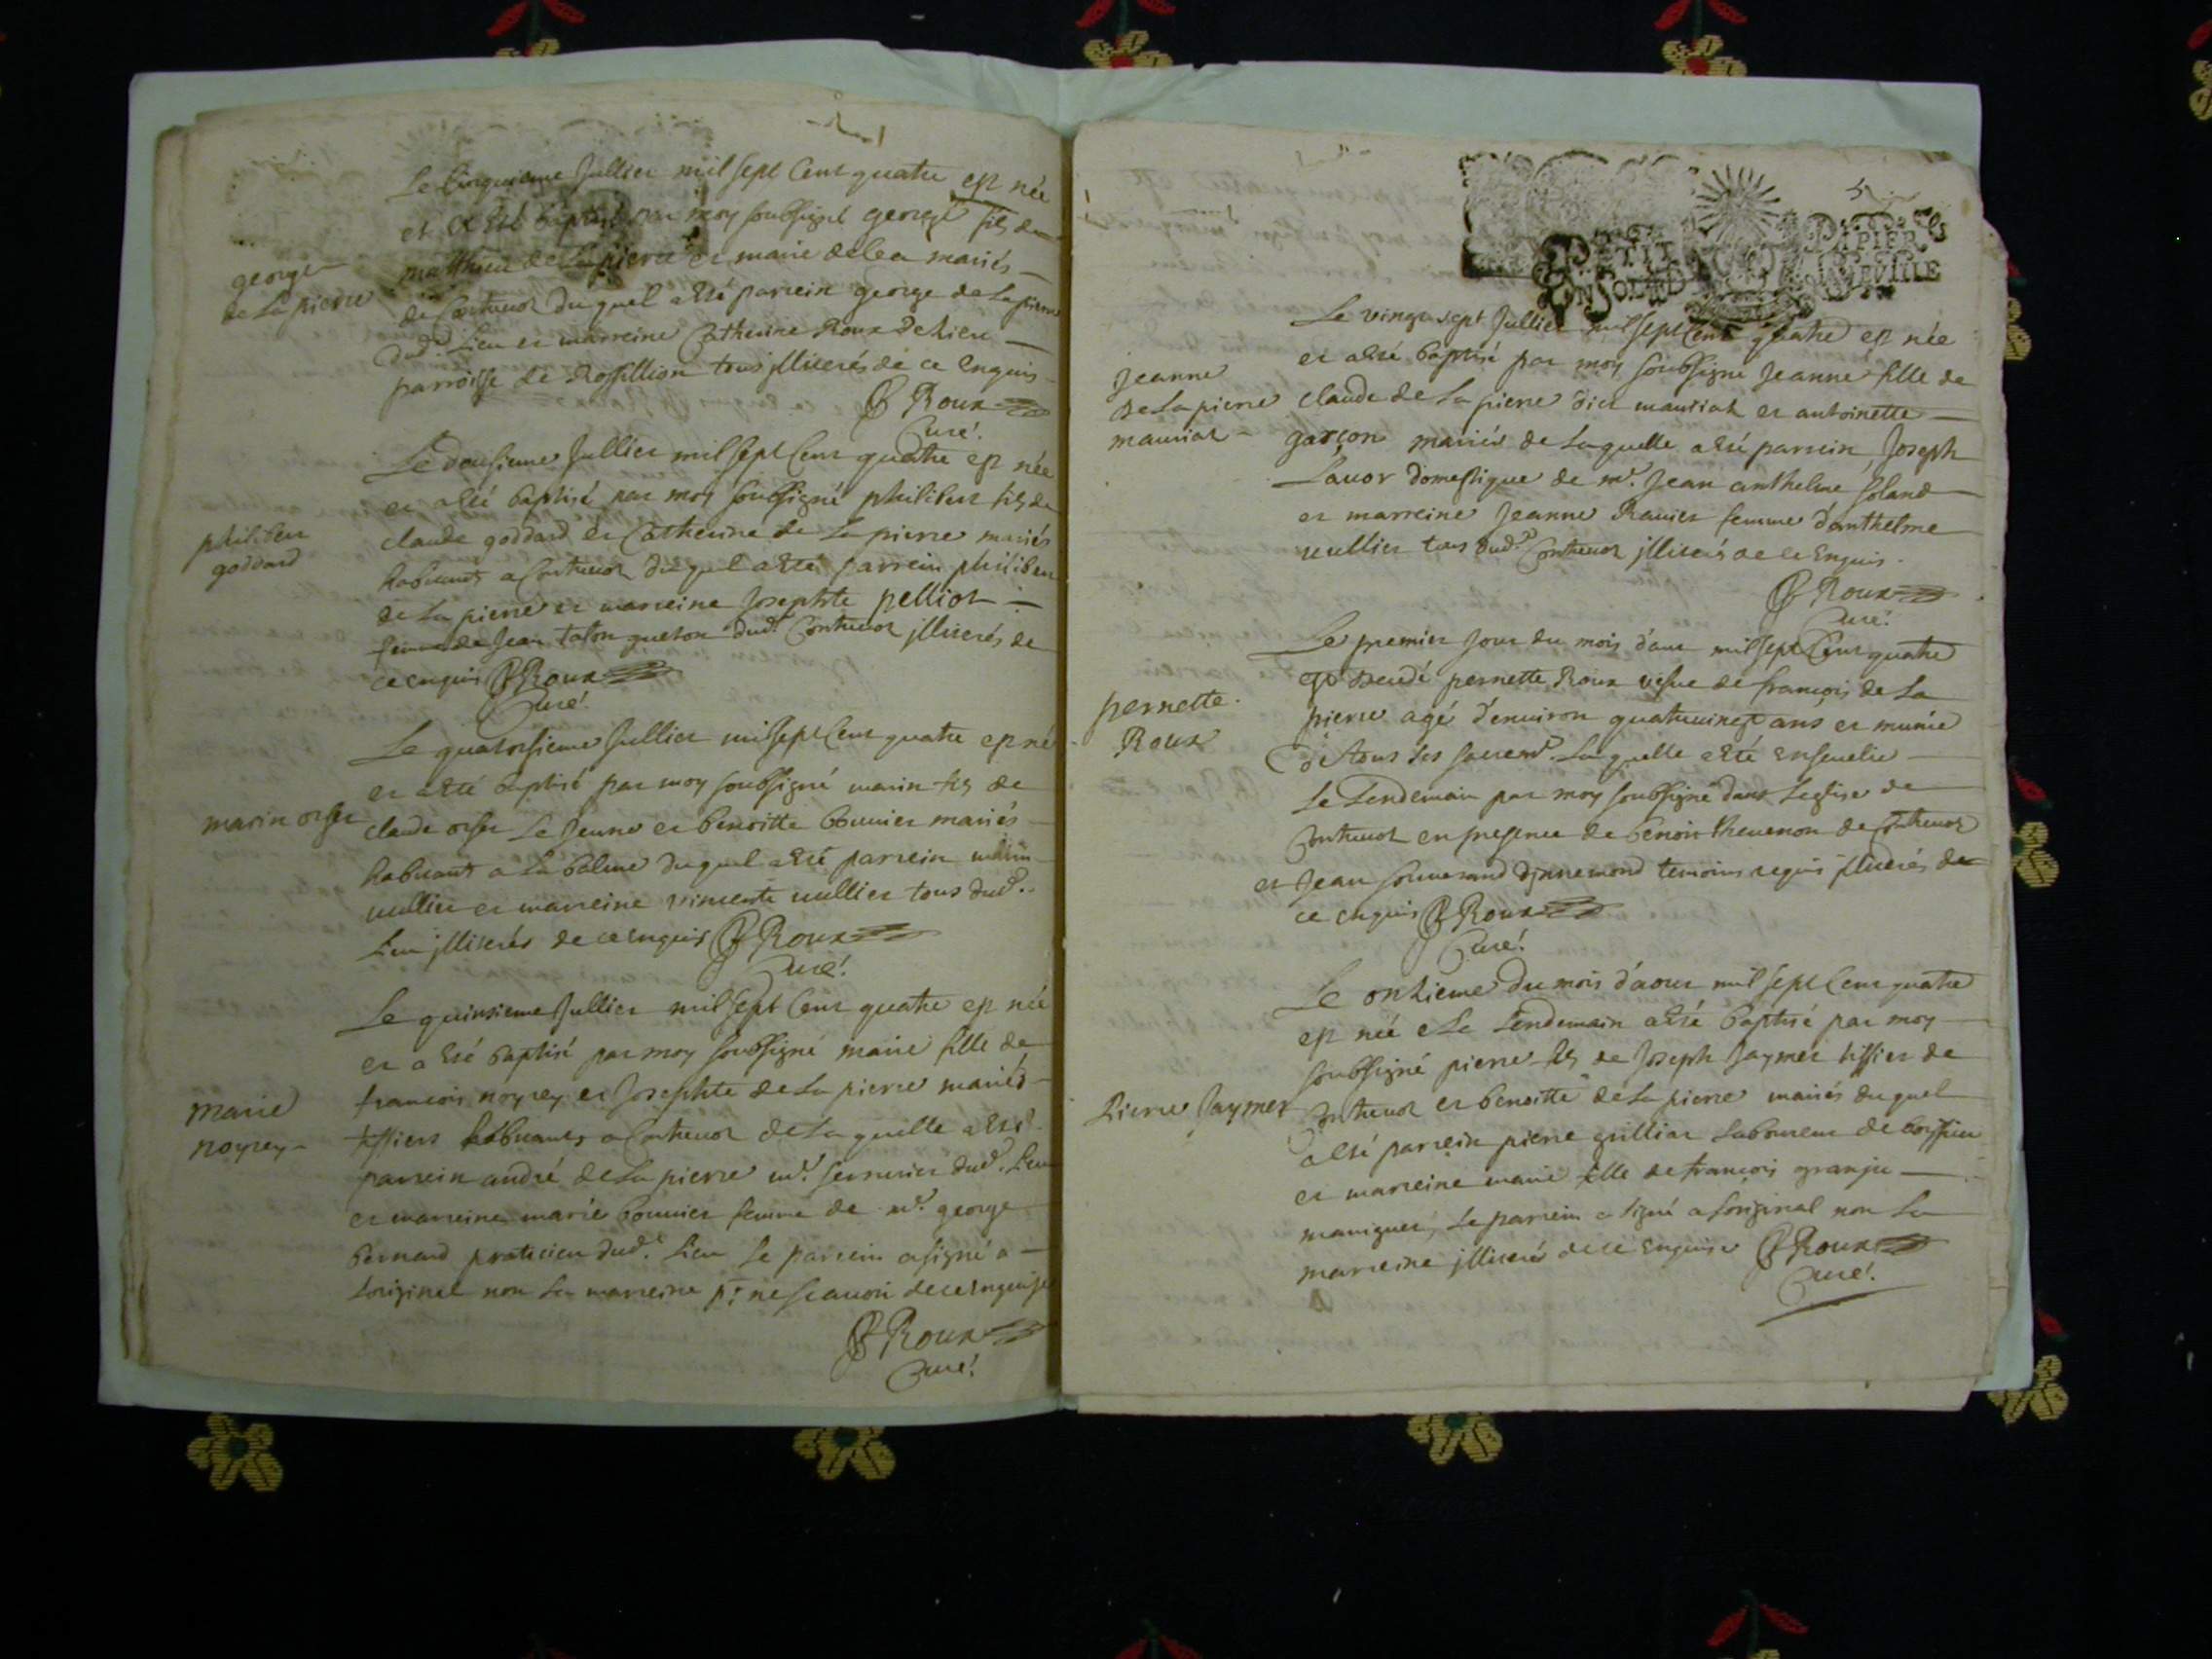 Le Cinquieme Jullier mil sept Cent quatre est née
et a esté baptisé par moy soubsigné george fils de
matthieu de La pierre et marie mariés
george
de La pierre
de Contreuoz du quel a esté parrein george de La pierre
dud. Lieu et marreine Catherine Roux
parroisse de Rossillion tous illiterés de ce Enquis
B Roux
Curé.
Le dousieme Jullier mil sept Cent quatre est née
et a esté baptisé par moy soubsigné philiber fils de
philiber
goddard
claude goddard et Catherine de La pierre mariés
habitants a Contreuoz du quel a esté parrein philiber
de La pierre et marreine Josephte pelliot
femme de Jean dud. Contreuoz illiterés de
ce enquis B Roux
Curé.
Le quatorsieme Jullier mil sept Cent quatre est né
et a esté baptisé par moy soubsigné marin fils de
marin orset
claude orset Le Jeune et benoitte bonnier mariés
habitants a La balme du quel a esté parrein marin
uullier et marreine vincente uullier tous dud.
Lieu illiterés de ce enquis B Roux
Curé.
Le quinsieme Jullier mil sept Cent quatre est née
et a esté baptisé par moy soubsigné marie fille de
marie
noyrey
francois noyrey et Josephte de La pierre mariés
tissiers habitants a Contreuoz de La quelle a esté
parrein andré de La pierre m. serrurier dud. Lieu
et marreine marie bonnier femme de m. george
bernard praticien dud. Lieu Le parrein a signé a
Loriginal non La marreine pr ne scauoir de ce enquise
B Roux
Curé.
5
PETIT PAPIER
EN SOL LA FEVILLE
Le vingt sept Jullier mil sept Cent quatre est née
et a esté baptisé par moy soubsigné Jeanne fille de
Jeanne
de La pierre
mauriat
claude de La pierre dict mauriat et antoinette
garçon mariés de La quelle a esté parrein Joseph
Lauor domestique de m. Jean anthelme soland
et marreine Jeanne Rauier femme d'anthelme
uullier tous dud. Contreuoz illiterés de ce Enquis.
B Roux
Curé.
Le premier Jour du mois d'aout mil sept Cent quatre
est decedé pernette Roux vefue de francois de La
pernette
Roux
pierre agé d'enuiron quatreuingt ans et munie
de tous les sacrem. La quelle a esté enseuelie
Le Lendemain par moy soubsigné dans Leglise de
Contreuoz en presence de benoit theuenon de Contreuoz
et Jean d'jnnemond temoins requis illiterés de
ce enquis B Roux
Curé.
Le onzieme du mois d'aout mil sept Cent quatre
est née Le Lendemain a esté baptisé par moy
soubsigné pierre fils de Joseph Jaymet tissier de
Pierre Jaymet
Contreuoz et benoitte de La pierre mariés du quel
a esté parrein pierre grilliat Laboureur de
et marreine marie fille de francois granju
Le parrein a signé a Loriginal non La
marreine illiteré de ce Enquise B Roux
Curé.